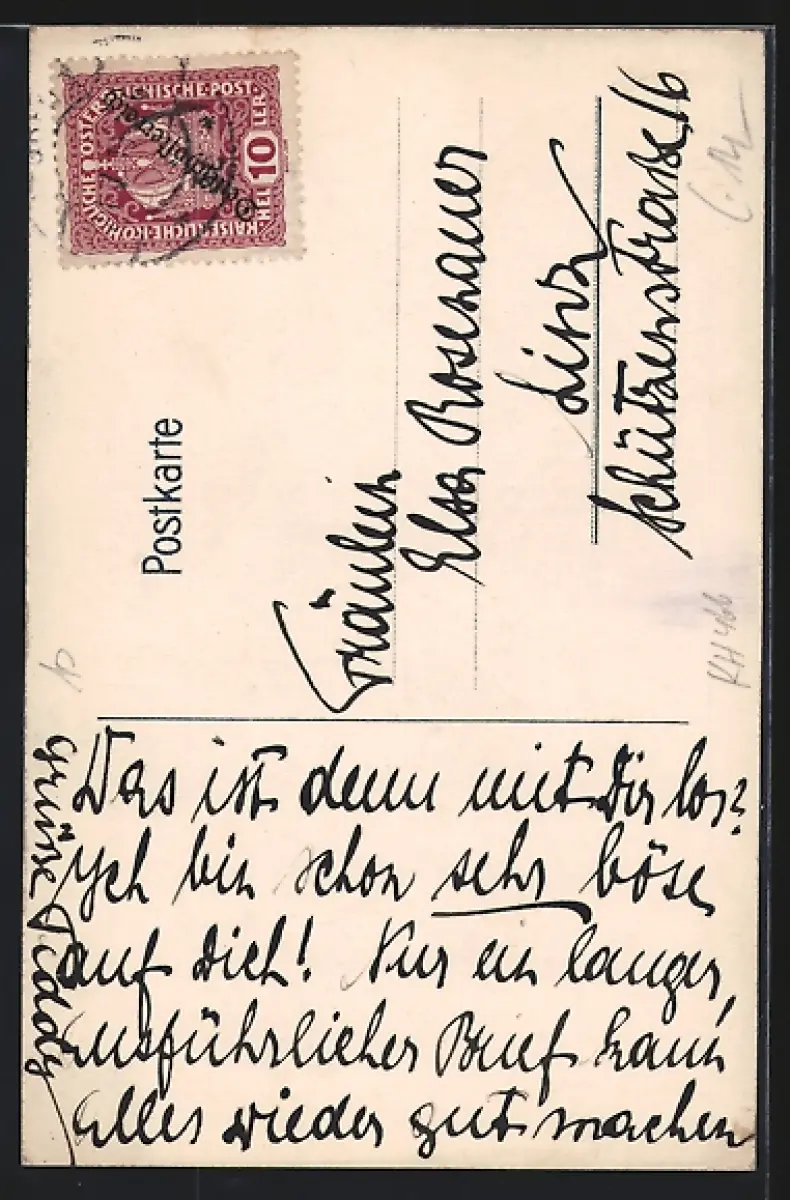 KAISERLICHE KÖNIGLICHE ÖSTERREICHISCHE POST
HELLER
10
Deutschösterreich
Postkarte
Fräulein
Elsa Rosenauer
Linz
Schützenstrasse 16
KH 466
Was ist denn mit Dir los?
Ich bin schon sehr böse
auf Dich! Nur ein langer,
ausführlicher Brief kann
alles wieder gut machen
Grüsse Friddy